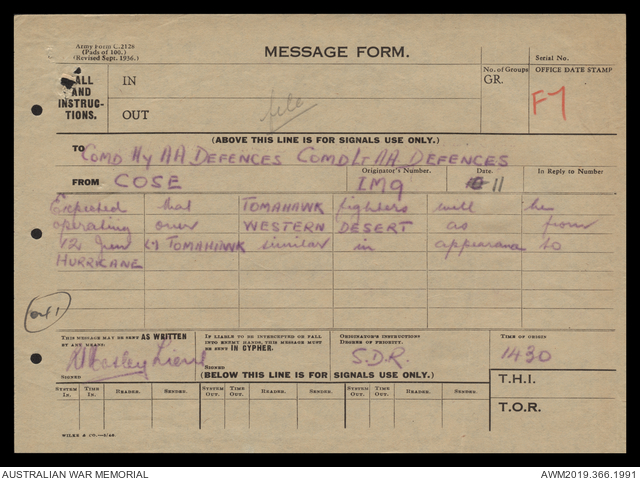 Army Form C.2128
(Pads of 100.)
(Revised Sept. 1936.)
MESSAGE FORM.
Serial No.
CALL AND INSTRUCTIONS.
IN
OUT
file
No. of Groups
GR.
OFFICE DATE STAMP
F7
(ABOVE THIS LINE IS FOR SIGNALS USE ONLY.)
TO COMD Hy AA DEFENCES COMD Lt AA DEFENCES
FROM COSE
Originator's Number.
IM9
Date.
11
In Reply to Number
Expected that TOMAHAWK fighters will be
operating over WESTERN DESERT as from
12 TOMAHAWK similar in appearance to
HURRICANE
THIS MESSAGE MAY BE SENT AS WRITTEN BY ANY MEANS.
Lieut
SIGNED
IF LIABLE TO BE INTERCEPTED OR FALL INTO ENEMY HANDS, THIS MESSAGE MUST BE SENT IN CYPHER.
SIGNED
ORIGINATOR'S INSTRUCTIONS
DEGREE OF PRIORITY.
S.D.R.
TIME OF ORIGIN
1430
(BELOW THIS LINE IS FOR SIGNALS USE ONLY.)
T.H.I.
T.O.R.
SYSTEM IN. TIME IN. READER. SENDER. SYSTEM OUT. TIME OUT. READER. SENDER. SYSTEM OUT. TIME OUT. READER. SENDER.
AUSTRALIAN WAR MEMORIAL
AWM2019.366.1991